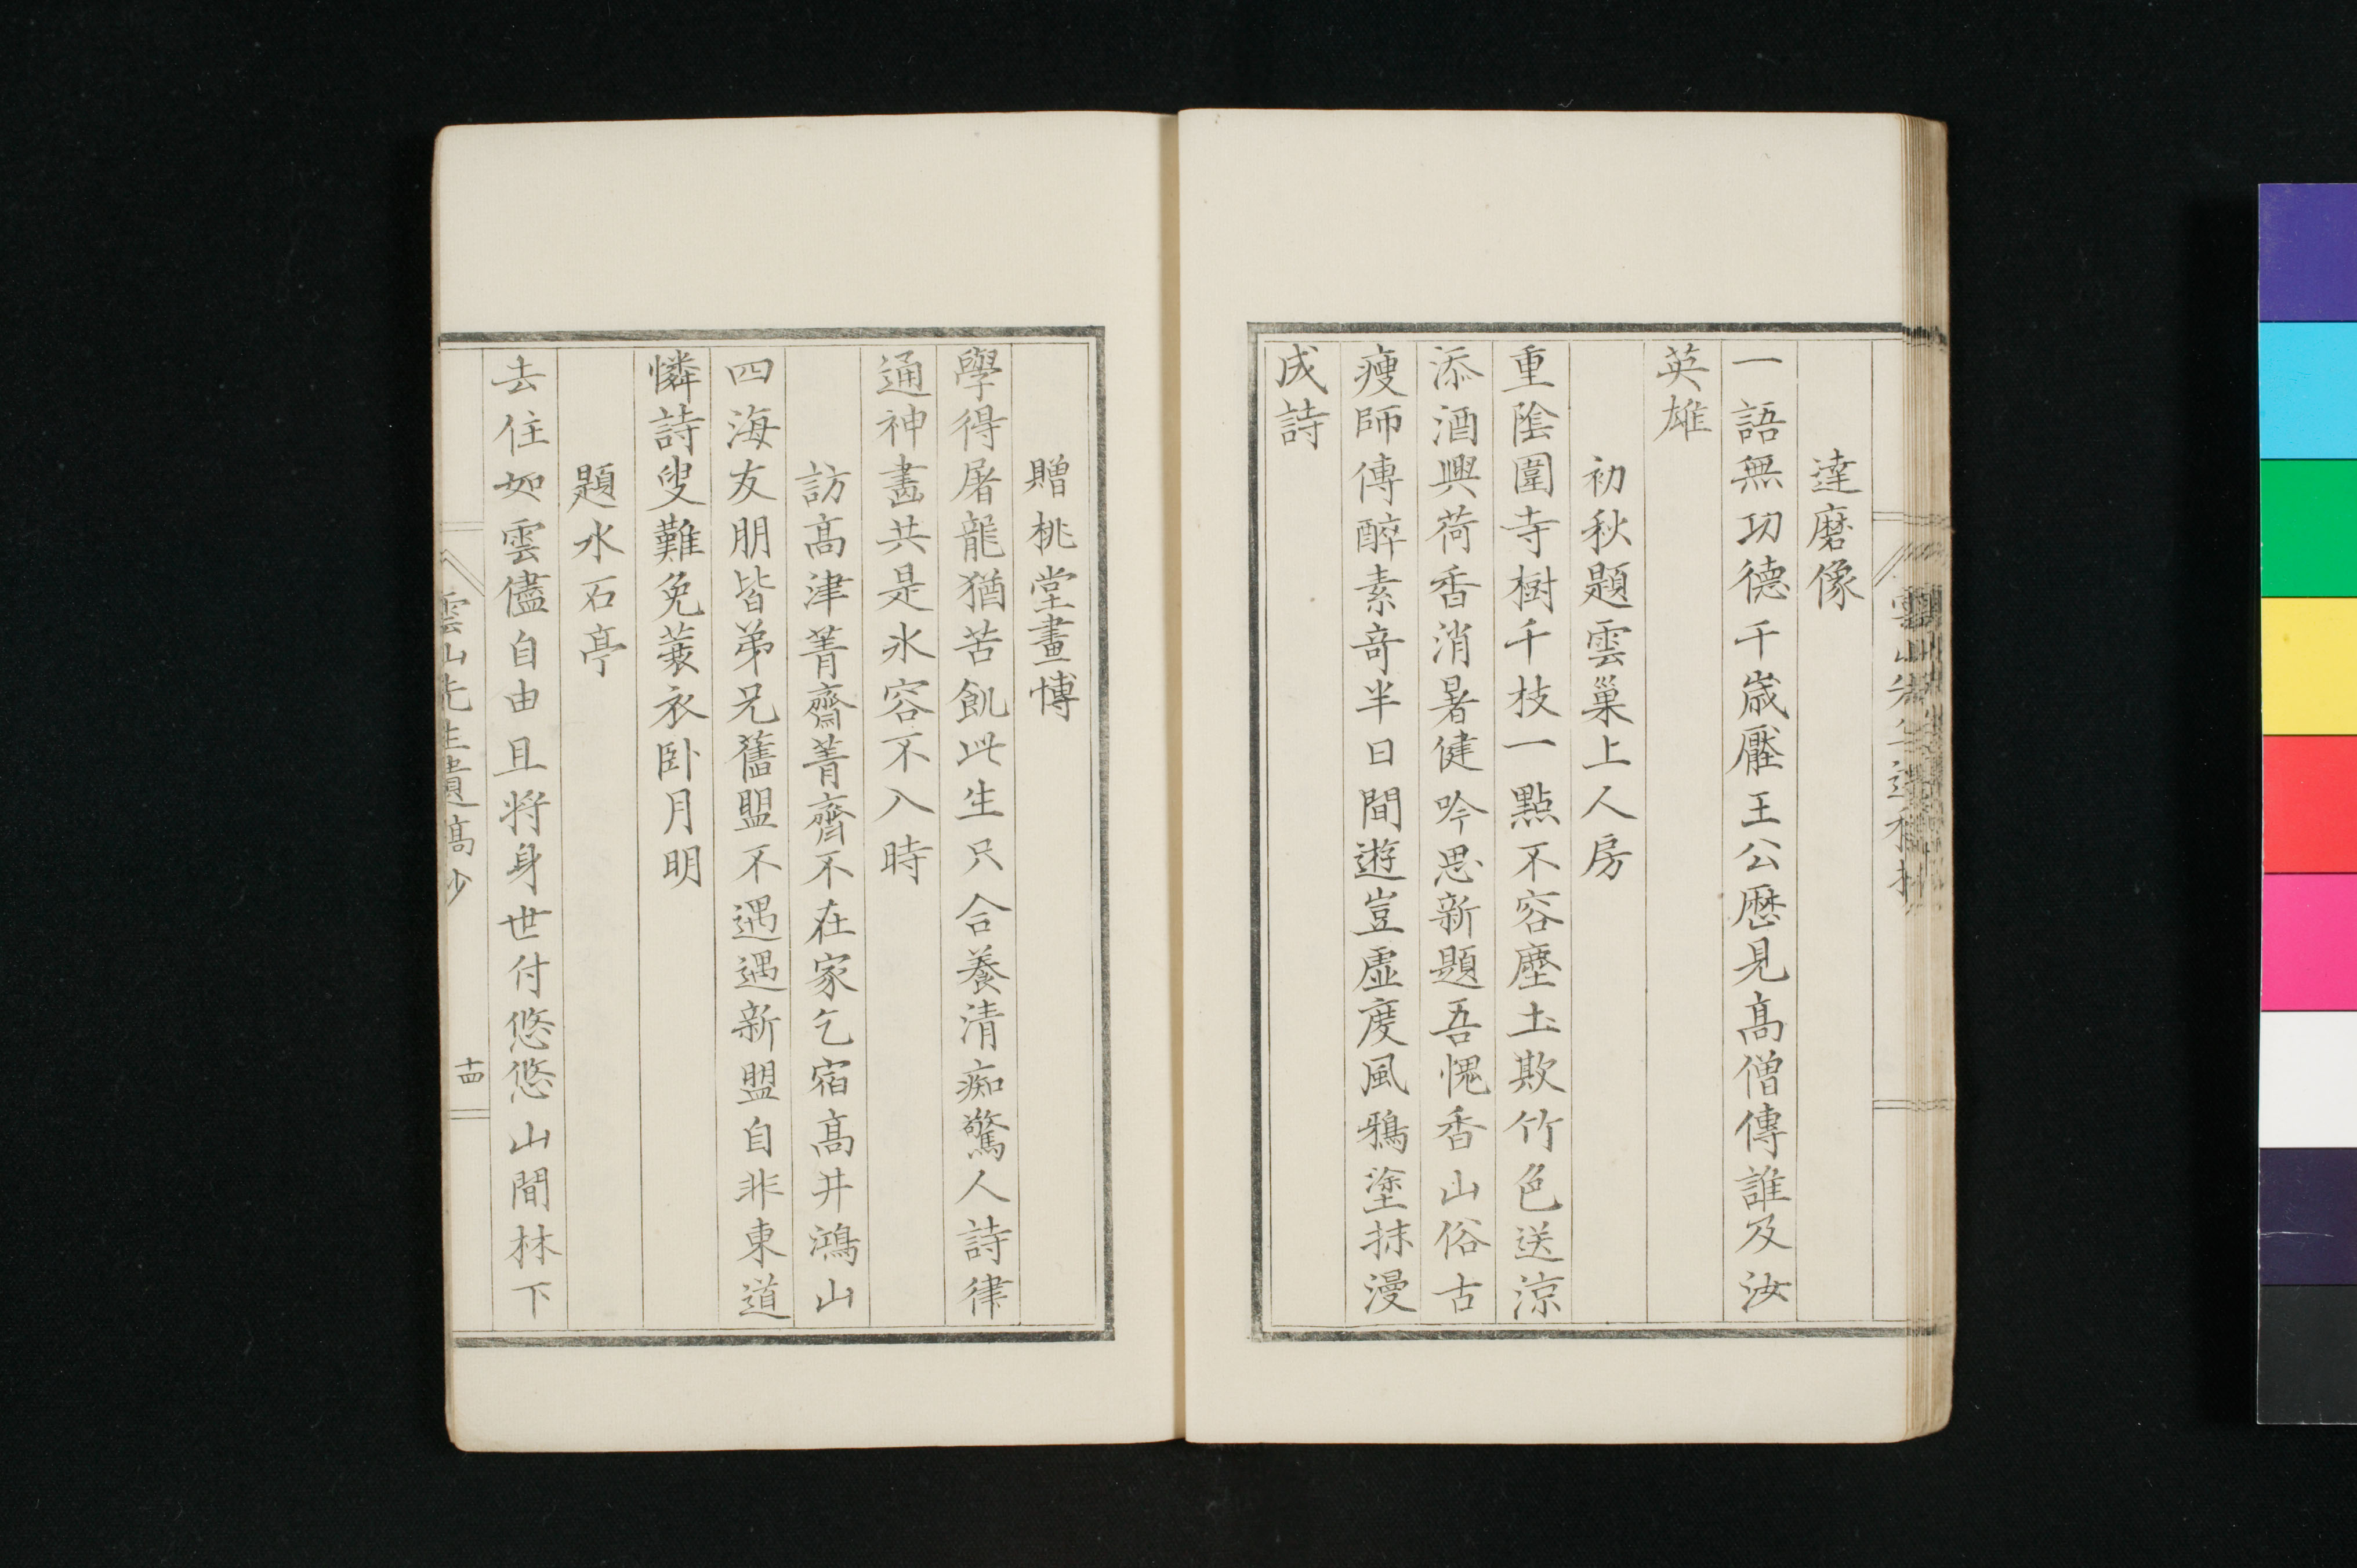 達磨像
一語無功德千歳壓王公歷見高僧傳誰及汝
英雄
初秋題雲巢上人房
重陰圍寺樹千枝一點不容塵土欺竹色送涼
添酒興荷香消暑健吟思新題吾愧香山俗古
瘦師傳醉素奇半日間遊豈虛度風鴉塗抹漫
成詩
贈桃堂畫博
學得屠龍猶苦飢此生只合養清痴驚人詩律
通神畵共是氷容不入時
訪髙津菁齋菁齋不在家乞宿髙井鴻山
四海友朋皆弟兄舊盟不遇遇新盟自非東道
憐詩叟難免蓑衣臥月明
題水石亭
去住如雲儘自由且将身世付悠悠山間林下
雲山先生遺髙少
十四